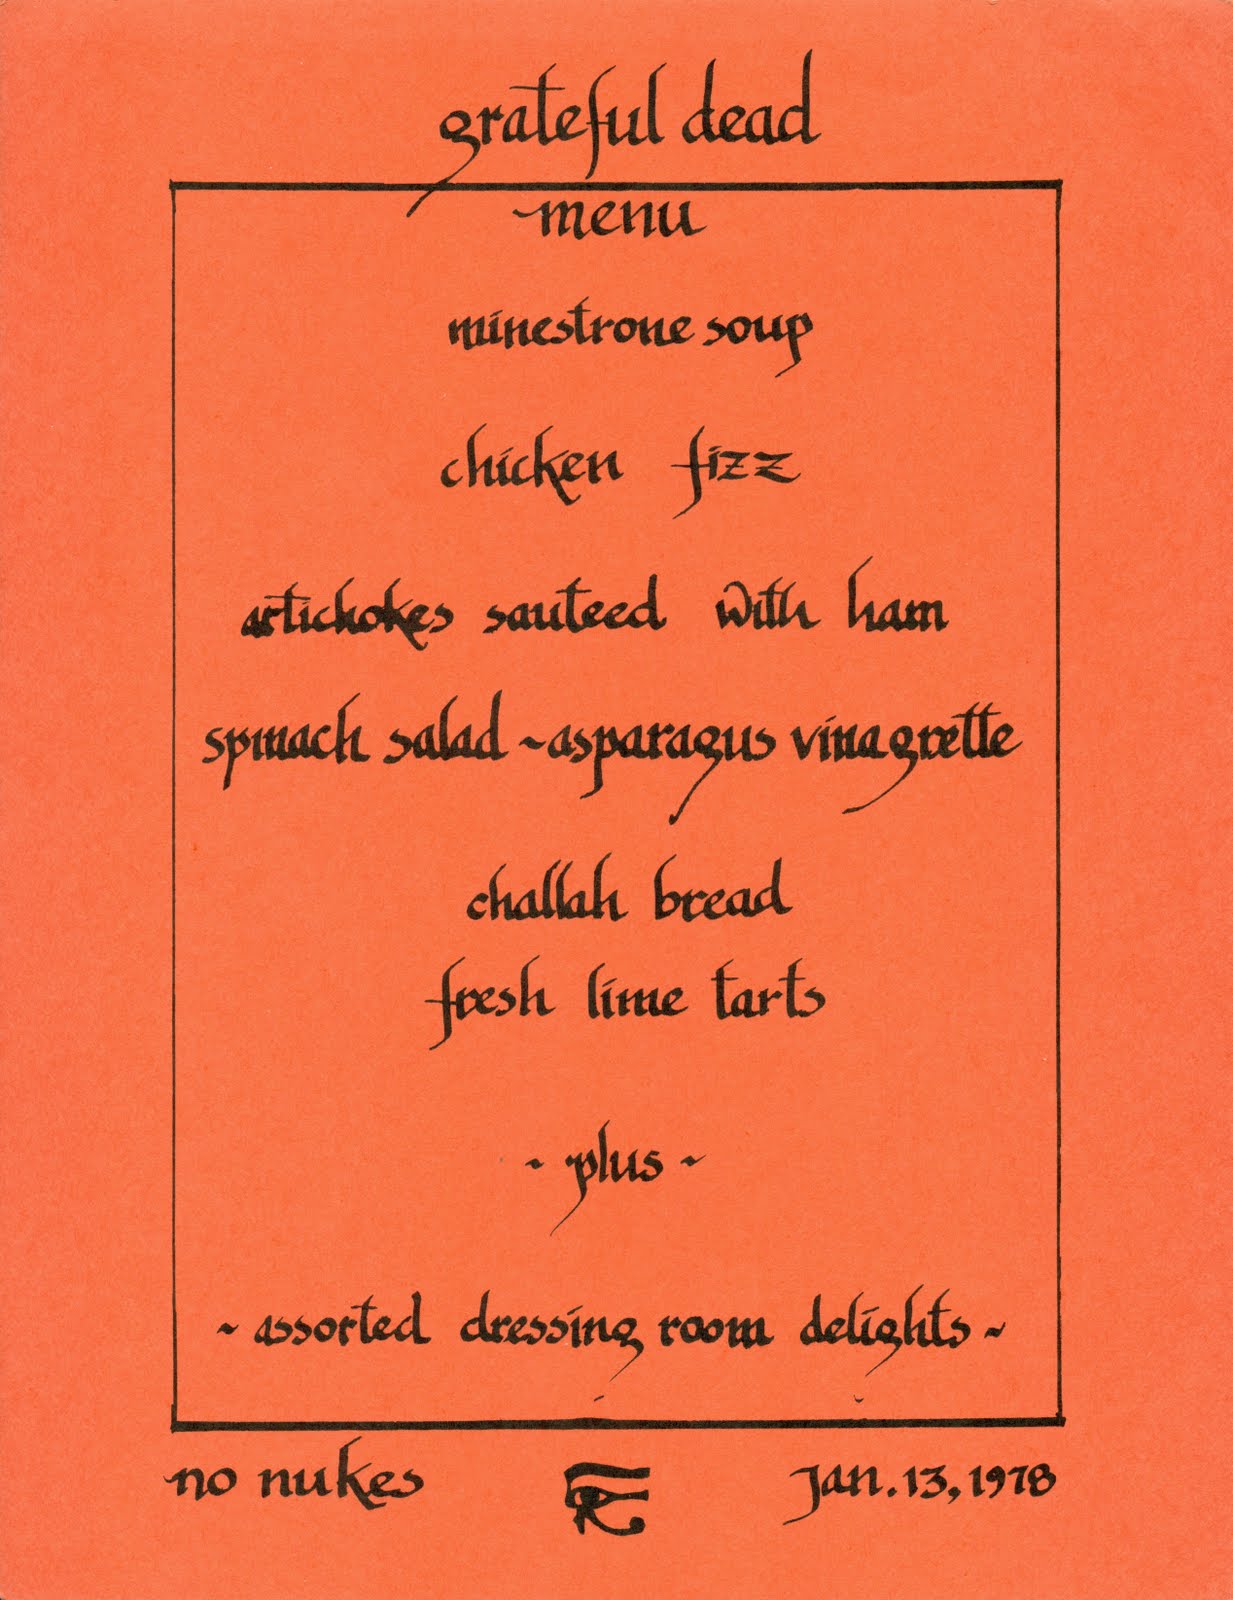 grateful dead
menu
minestrone soup
chicken fizz
artichokes sauteed with ham
spinach salad ~ asparagus vinagrette
challah bread
fresh lime tarts
~ plus ~
~ assorted dressing room delights ~
no nukes
Jan. 13, 1978